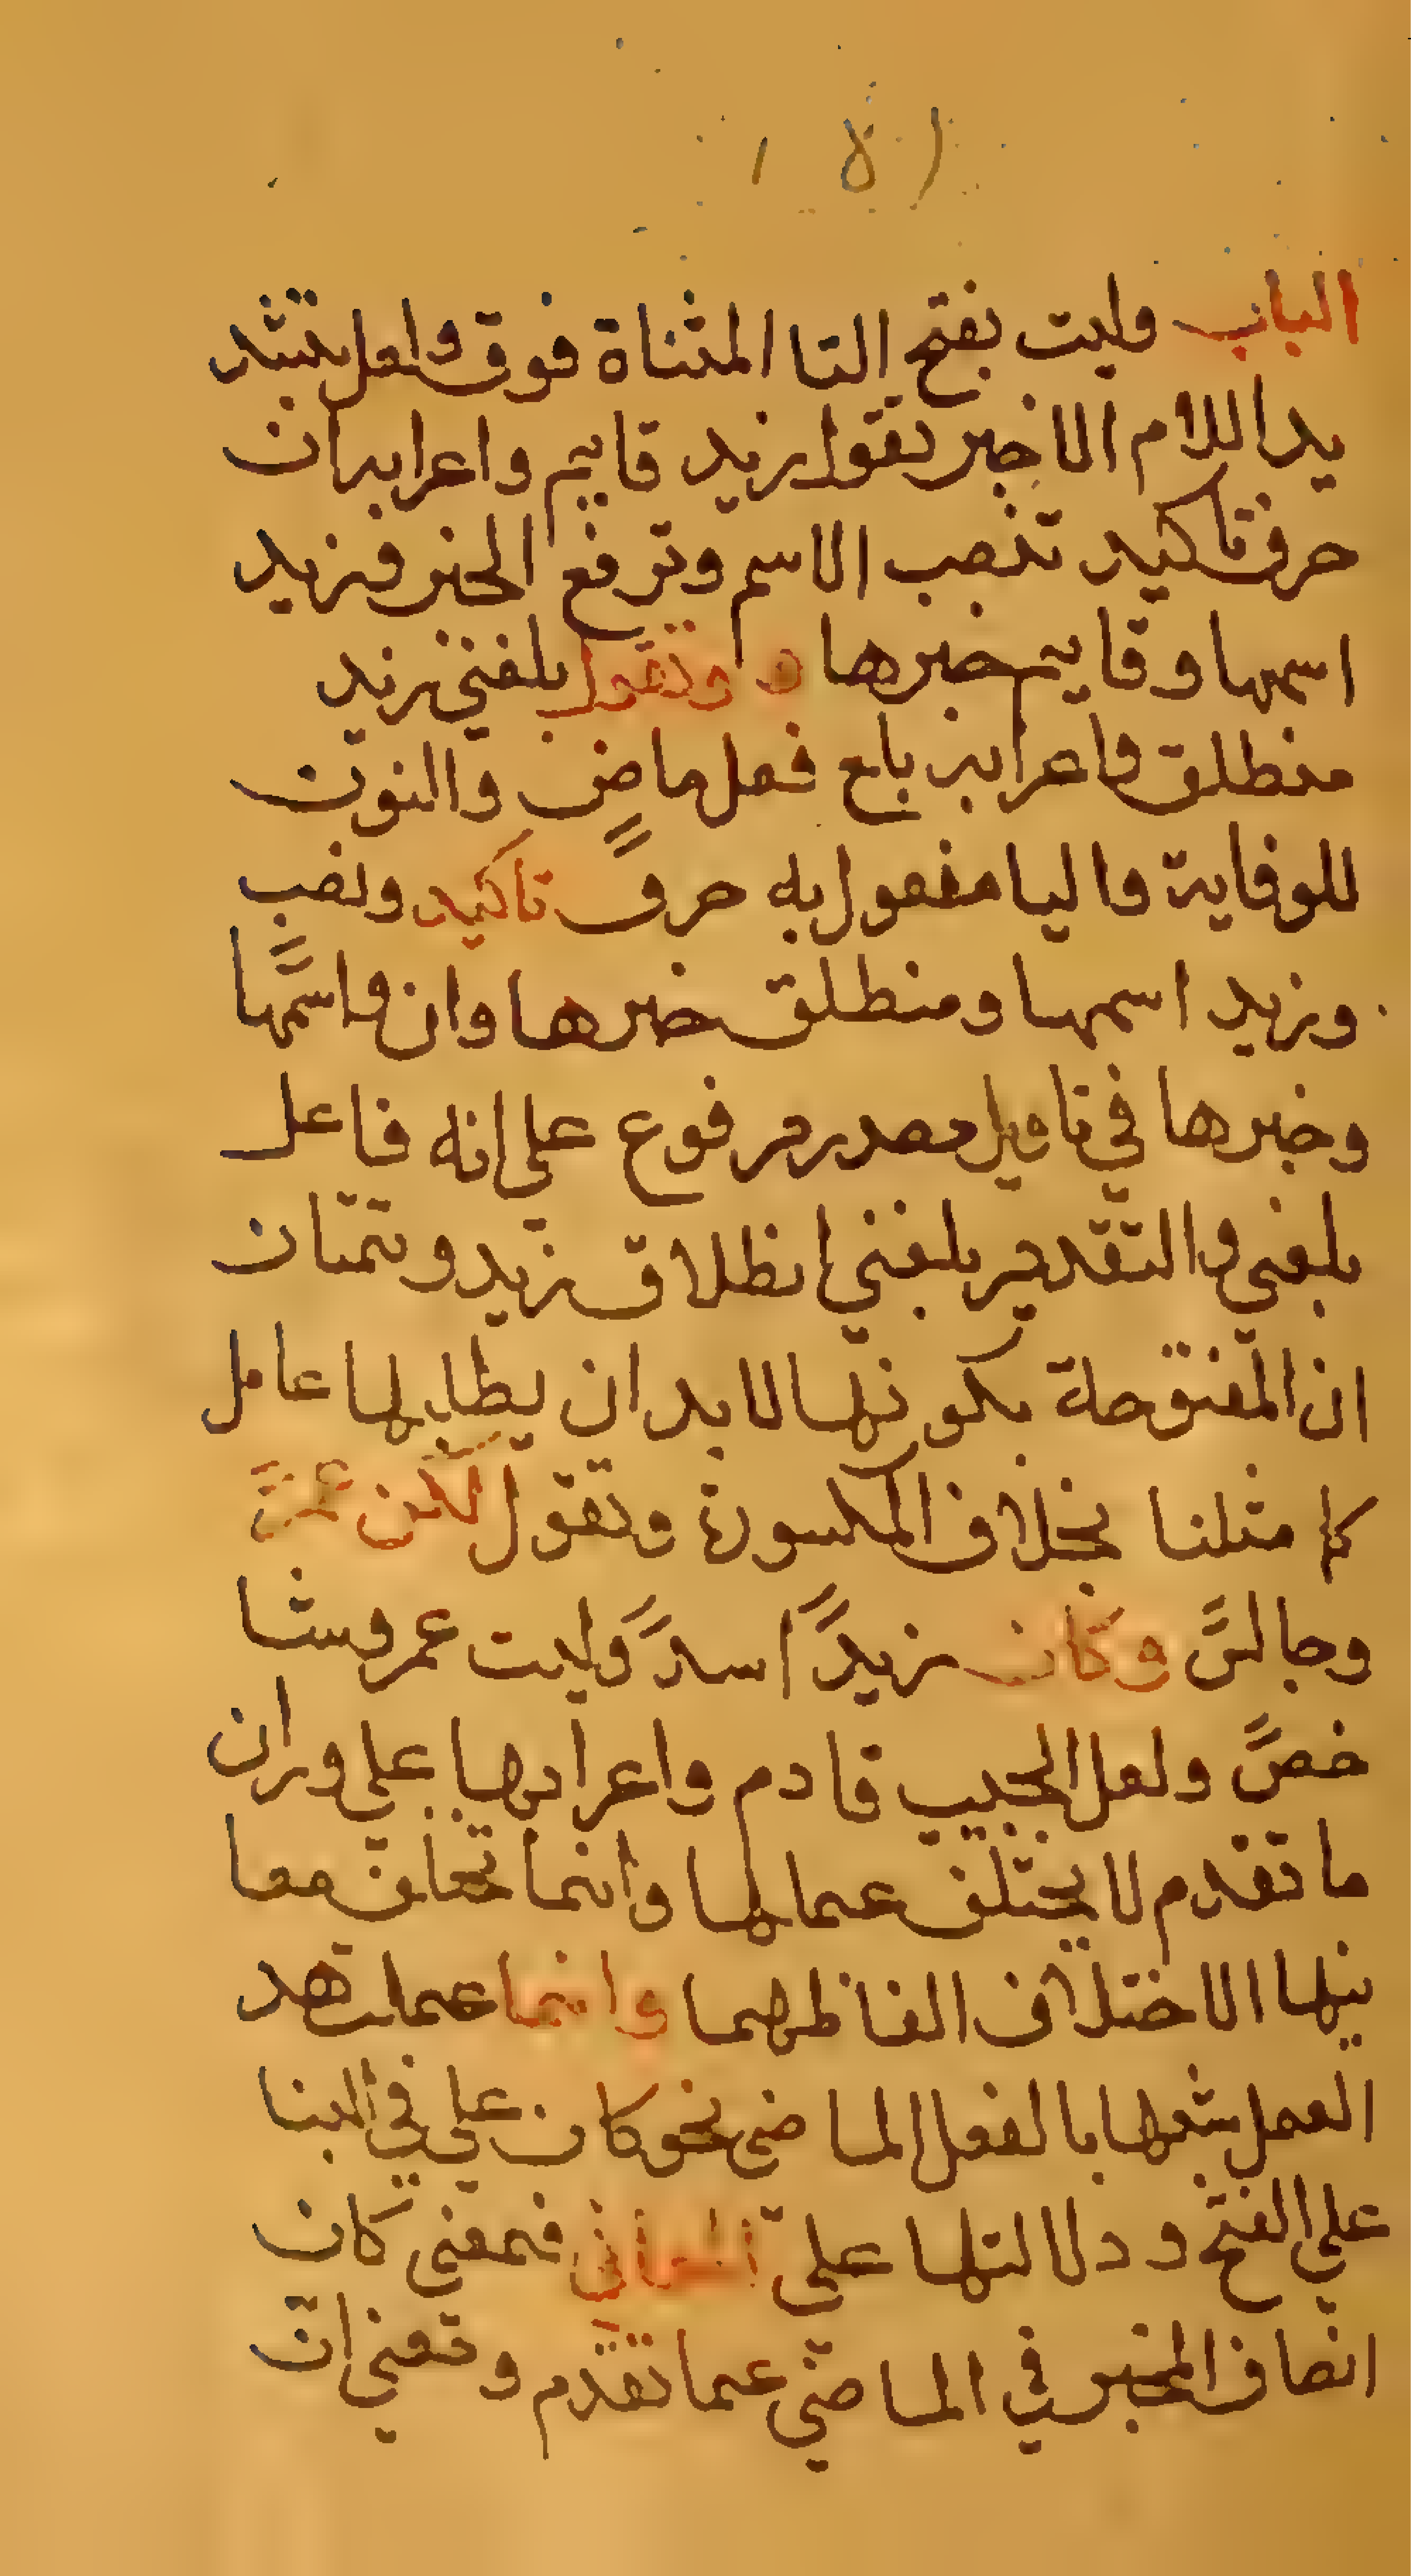 الباب وليت بفتح التا المثناة فوق ولعل بتشد
يد اللام الاخير تقول زيد قايم واعرابه ان
حرف تاكيد تنصب الاسم وترفع الخبر فزيد
اسمها وقايم خبرها ه وتقول بلغني زيد
منطلق واعرابه بلغ فعل ماض والنون
للوقاية واليا مفعول به حرفً تاكيد ونصب
وزيد اسمها ومنطلق خبرها وان واسمها
وخبرها في تاويل مصدر مرفوع على انه فاعل
بلغني والتقدير بلغني انطلاق زيد وتمتان
ان المفتوحة بكونها لا بد ان يطلبها عامل
كما مثلنا بخلاف المكسورة وتقول لكن
وجالسً وكان زيدً اسدً وليت عمر وشا
خصً ولعل الحبيب قادم واعرابها على وران
ما تقدم لا يختلف عملها وانما تختلف معا
نيها الاختلاف الفاظهما وانما عملت هد
العمل شبهها بالفعل الماضي نحو كان على في البنا
على الفتح و دلالتها على المعاني فمعنى كان
اتصاف المخبر في الماضي عما تقدم ومعني ان